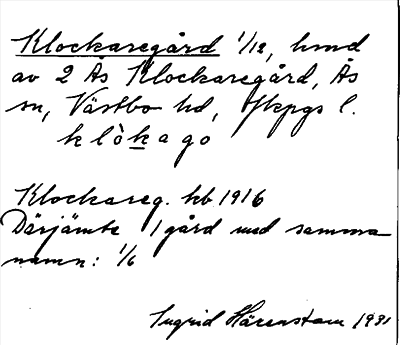 Klockaregård 1/12, hmd
av 2 Ås Klockaregård, Ås
sn, Västbo hd, Jkpgs l.
klòkago
Klockareg. hb 1916
Därjämte 1 gård med samma
namn: 1/6
Ingrid Härenstam 1931